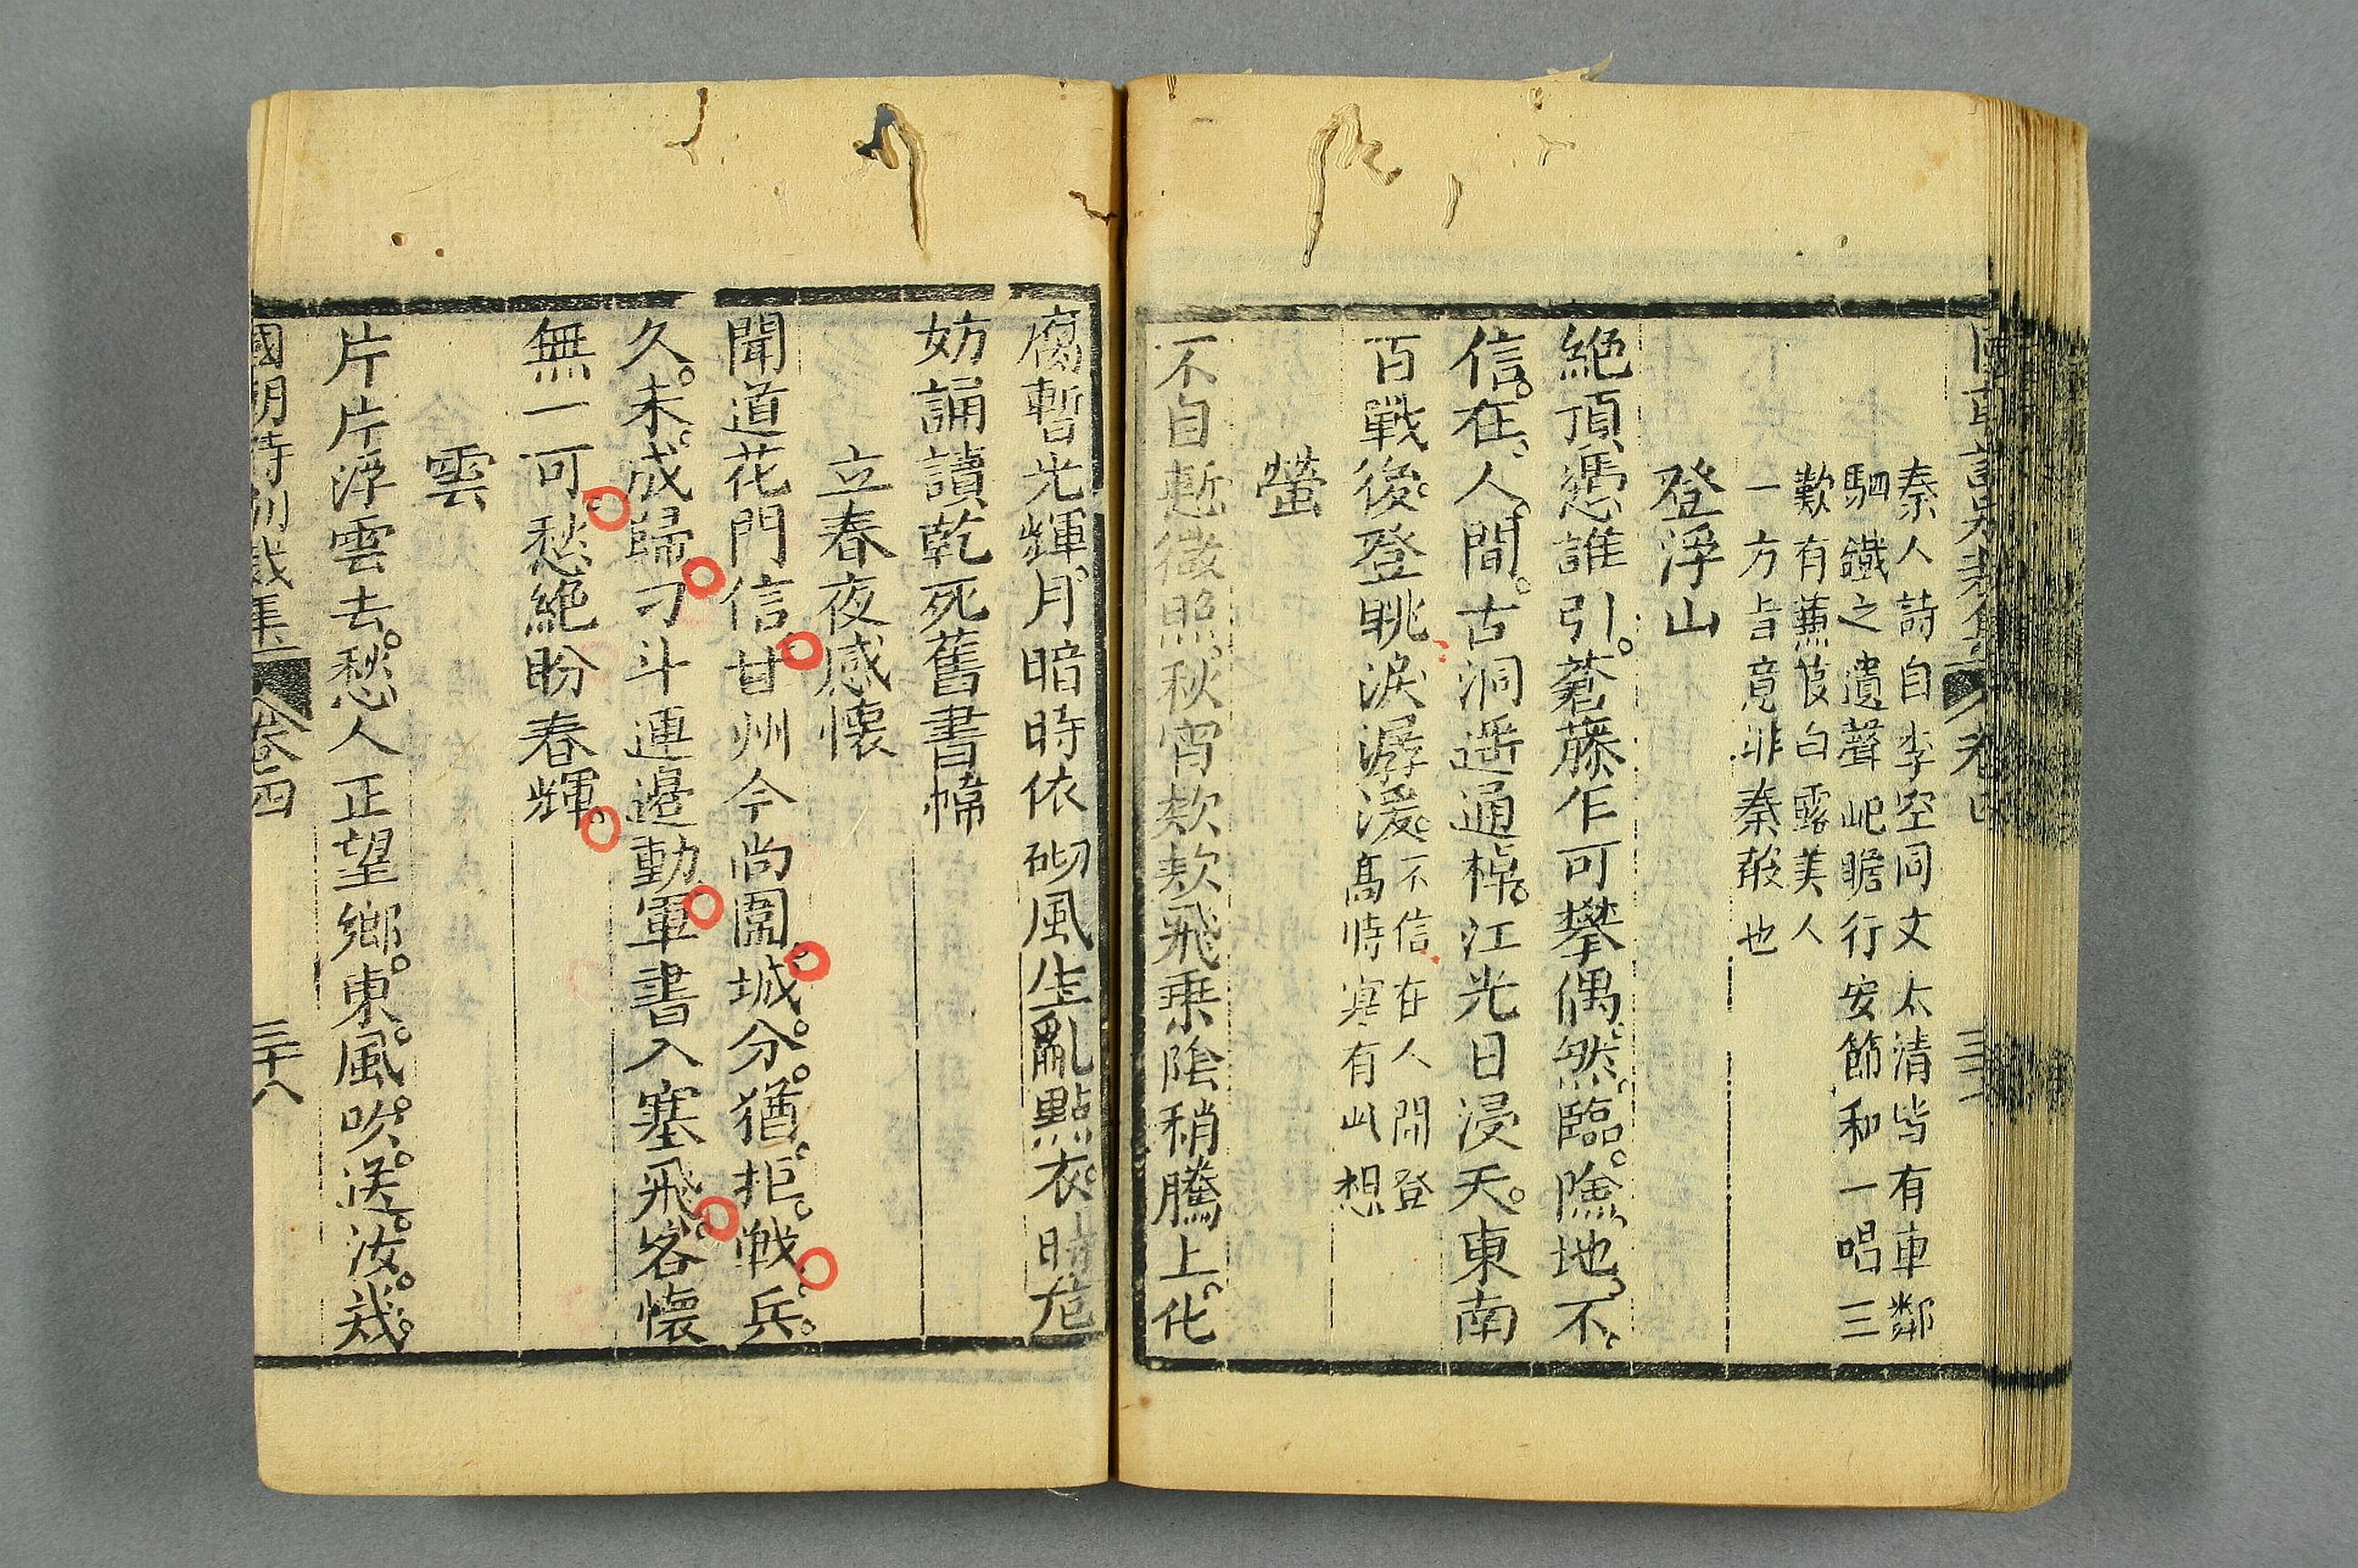 秦人詩自李空同文太清皆有車鄰
駟鐵之遺聲屺瞻行安節和一唱三
歎有蒹葭白露美人
一方旨竟非秦聲也
登浮山
絶頂憑誰引。蒼藤乍可攀偶然臨。險地不
信在人間。古洞遥通棧。江光日浸天。東南
百戰後登眺淚潺湲。
不信在人間登
高時實有此想
螢
不自慙微照。秋宵欵欵飛乗陰稍騰上。化
腐暫光輝。月暗時依砌風生亂點衣。時危
妨誦讀乾死舊書幃
立春夜感懷
聞道花門信。甘州今尚圍。城分猶拒戰兵。
久未成歸。刁斗連邉動。軍書入塞飛。客懷
無一可。愁絶盼春輝。
雲
片片浮雲去。愁人正望鄉。東風吹送汝哉
國朝詩別裁集 卷四 三十八